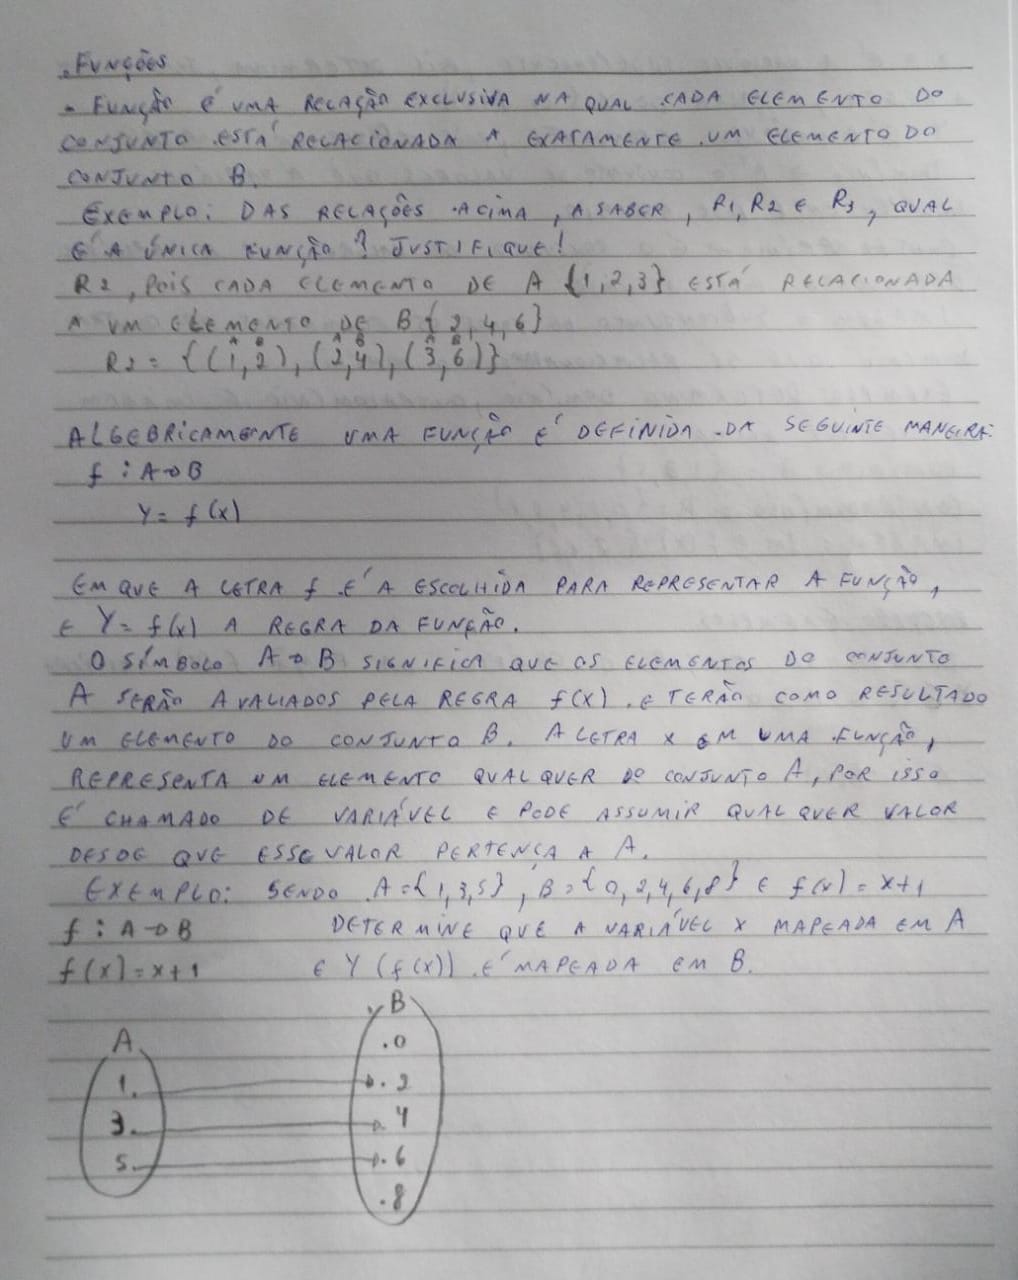 . FUNÇÕES
- FUNÇÃO É UMA RELAÇÃO EXCLUSIVA NA QUAL CADA ELEMENTO DO
CONJUNTO ESTÁ RELACIONADA A EXATAMENTE UM ELEMENTO DO
CONJUNTO B.
EXEMPLO: DAS RELAÇÕES ACIMA, A SABER, R1, R2 E R3, QUAL
É A ÚNICA FUNÇÃO? JUSTIFIQUE!
R2, POIS CADA ELEMENTO DE A {1,2,3} ESTÁ RELACIONADA
A UM ELEMENTO DE B{2,4,6}
A B A B A B
R2 = {(1,2),(2,4),(3,6)}
ALGEBRICAMENTE UMA FUNÇÃO É DEFINIDA DA SEGUINTE MANEIRA:
f : A→B
Y = f(x)
EM QUE A LETRA f É A ESCOLHIDA PARA REPRESENTAR A FUNÇÃO,
E Y = f(x) A REGRA DA FUNÇÃO.
O SÍMBOLO A→B SIGNIFICA QUE OS ELEMENTOS DO CONJUNTO
A SERÃO AVALIADOS PELA REGRA f(x) E TERÃO COMO RESULTADO
UM ELEMENTO DO CONJUNTO B. A LETRA X EM UMA FUNÇÃO,
REPRESENTA UM ELEMENTO QUALQUER DO CONJUNTO A, POR ISSO
É CHAMADO DE VARIÁVEL E PODE ASSUMIR QUALQUER VALOR
DESDE QUE ESSE VALOR PERTENÇA A A.
EXEMPLO: SENDO A={1,3,5}, B={0,2,4,6,8} E f(x) = x+1
f : A→B DETERMINE QUE A VARIÁVEL X MAPEADA EM A
f(x)=x+1 E Y (f(x)) É MAPEADA EM B.
A B
1. .0
3. .2
5. .4
.6
.8